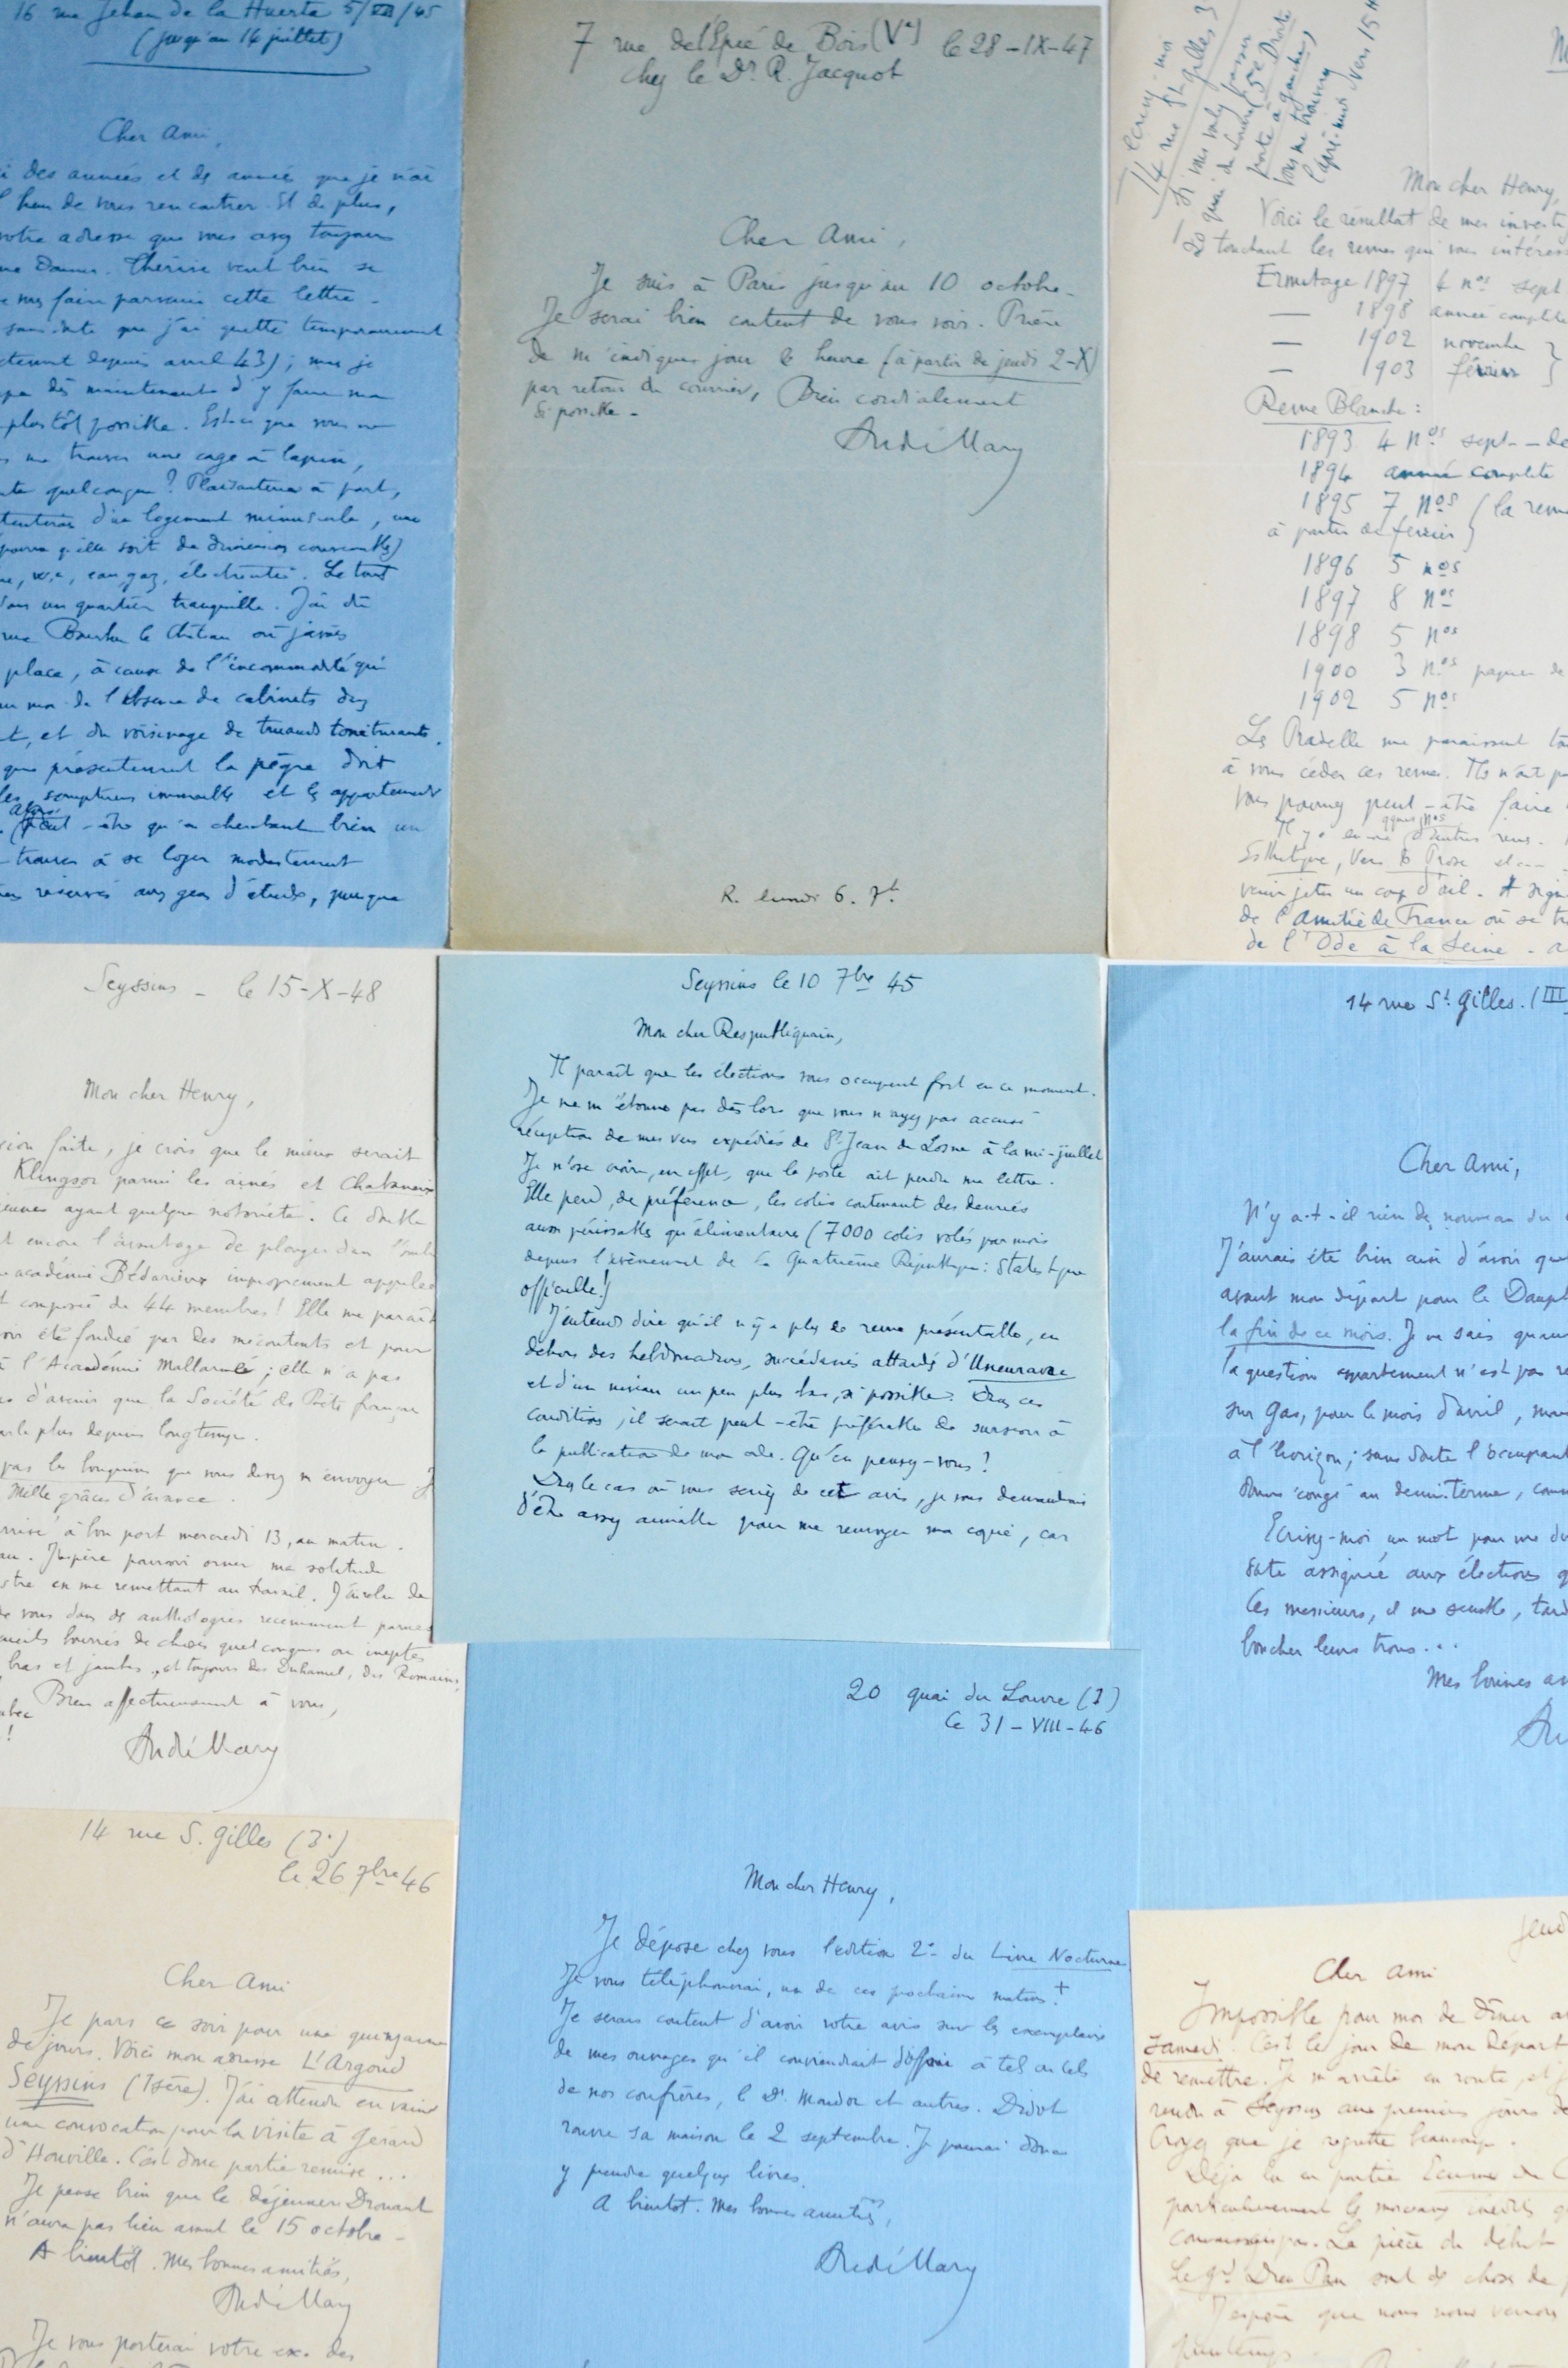 16 rue Jehan de la Huerta 5/VII/45
(jusqu'au 14 juillet)
Cher Ami,
des années et des années que je n'ai
de vous rencontrer. Et de plus,
votre adresse que vous avez toujours
Thérèse veut bien se
faire parvenir cette lettre.
que j'ai quitté temporairement
depuis avril 43) ; mais je
dès maintenant d'y faire ma
plus tôt possible. Est-ce que vous ne
me trouver une cage à lapin,
quelconque ? Plaisanterie à part,
d'un logement minuscule, une
qu'elle soit de dimensions courantes)
w.c, eau, gaz, électricité. Le tout
dans un quartier tranquille. J'ai dû
rue Bourbon le Château où j'avais
place, à cause de l'incommodité qui
de l'absence de cabinets dans
et du voisinage de truands tonitruants.
que présentement la pègre doit
somptueux immeubles et les appartements
peut-être qu'en cherchant bien un
à se loger modestement
réservés aux gens d'étude, puisque
7 rue de l'Epée de Bois (Ve) le 28-IX-47
chez le Dr. R. Jacquot
Cher Ami,
Je suis à Paris jusqu'au 10 octobre.
Je serai bien content de vous voir. Prière
de m'indiquer jour & heure (à partir de jeudi 2-X)
par retour du courrier, Bien cordialement
si possible.
André Mary
R. lundi 6. 7h
14 rue St Gilles 3
Si vous voulez passer
20 quai du Louvre (5e Droite
porte à gauche)
vous me trouverez
l'après-midi vers 15 H
Mon cher Henry,
Voici le résultat de mes investi
touchant les revues qui vous intéress
Ermitage 1897 4 nos sept
— 1898 année complète
— 1902 novembre }
— 1903 février }
Revue Blanche :
1893 4 Nos sept — de
1894 année complète
1895 7 Nos (la revue
à partir de février)
1896 5 nos
1897 8 Nos
1898 5 Nos
1900 3 Nos
1902 5 Nos
Les Pradelle me paraissent
à vous céder ces revues. Ils n'ont pa
Vous pourrez peut-être faire
Il y a encore qques Nos d'autres revues.
Esthétique, Vers & Prose etc —
venir jeter un coup d'œil. A sign
de l'Amitié de France où se tr
de l'Ode à la Seine -
Seyssins - le 15-X-48
Mon cher Henry,
faite, je crois que le mieux serait
Klingsor parmi les aînés et Chabaneix
ayant quelque notoriété. Ce double
encore l'avantage de plonger dans
académie Bédarieux improprement appelée
composée de 44 membres ! Elle me paraît
été fondée par des mécontents et pour
à l'Académie Mallarmé ; elle n'a pas
d'avenir que la Société des Poètes français
parle plus depuis longtemps.
pas les bouquins que vous devez m'envoyer
Mille grâces d'avance.
à bon port mercredi 13, au matin.
J'espère pouvoir orner ma solitude
en me remettant au travail. J'ai
de vous dans des anthologies récemment parues
bourrés de choses quelconques ou ineptes
bras et jambes, et toujours des Duhamel, des Romains,
Bien affectueusement à vous,
André Mary
Seyssins le 10 7bre 45
Mon cher Respubliquain,
Il paraît que les élections vous occupent fort en ce moment.
Je ne m'étonne pas dès lors que vous n'ayez pas accusé
réception de mes vers expédiés de St Jean de Losne à la mi-juillet
Je n'ose croire, en effet, que la poste ait perdu ma lettre.
Elle perd, de préférence, les colis contenant des denrées
aussi périssables qu'alimentaires (7000 colis volés par mois
depuis l'avènement de la Quatrième République : Statistique
officielle !)
J'entends dire qu'il n'y a plus de revue présentable, en
dehors des hebdomadaires, succédanés attardés d'Uneurave
et d'un niveau un peu plus bas, si possible. Dans ces
conditions, il serait peut-être préférable de surseoir à
la publication de mon ode. Qu'en pensez-vous ?
Dans le cas où vous seriez de cet avis, je vous demanderais
d'être assez aimable pour me renvoyer ma copie, car
14 rue St. Gilles. (III
Cher Ami,
N'y a-t-il rien de nouveau du
J'aurais été bien aise d'avoir que
avant mon départ pour le Dauph
la fin de ce mois. Je ne sais quan
la question appartement n'est pas ré
sur Gas, pour le mois d'avril,
à l'horizon ; sans doute l'occupant
congé au demi-terme,
Ecrivez-moi un mot pour me di
date assignée aux élections q
Ces messieurs, il me semble, tard
boucher leurs trous...
Mes bonnes am
14 rue S. Gilles (3e)
le 26 7bre 46
Cher Ami
Je pars ce soir pour une quinzaine
de jours. Voici mon adresse L'Argoud
Seyssins (Isère). J'ai attendu en vain
une convocation pour la visite à Gérard
d'Houville. C'est donc partie remise...
Je pense bien que le déjeuner Drouant
n'aura pas lieu avant le 15 octobre.
A bientôt. Mes bonnes amitiés,
André Mary
Je vous porterai votre ex. des
20 quai du Louvre (I)
Ce 31-VIII-46
Mon cher Henry,
Je dépose chez vous l'édition 2e du Livre Nocturne
Je vous téléphonerai, un de ces prochains matins. +
Je serais content d'avoir votre avis sur les exemplaires
de mes ouvrages qu'il conviendrait d'offrir à tel ou tels
de nos confrères, le Dr Mondor et autres. Didot
rouvre sa maison le 2 septembre. Je pourrai donc
y prendre quelques livres.
A bientôt. Mes bonnes amitiés,
André Mary
Jeud
Cher Ami
Impossible pour moi de dîner a
samedi. C'est le jour de mon départ
de remettre. Je m'arrête en route, et
rendu à Seyssins aux premiers jours de
Croyez que je regrette beaucoup.
Déjà lu en partie Ecume de
particulièrement les morceaux inédits
connaissais pas. La pièce du début
Le gd Dieu Pan sont des choses de
J'espère que nous nous verrons
printemps